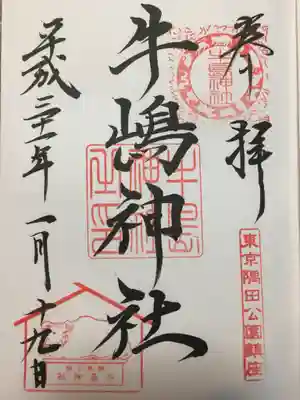 奉拝
牛嶋神社
平成三十一年一月十九日
東京隅田公園鎮座